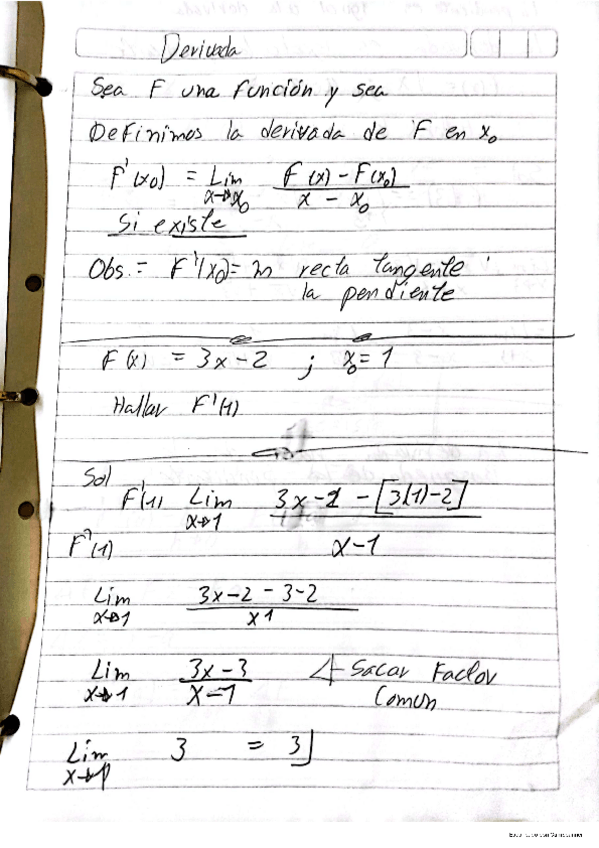 Derivada
Sea F una función y sea
Definimos la derivada de F en x₀
F'(x₀) = Lim x→x₀ F(x) - F(x₀) / x - x₀
Si existe
Obs. = F'(x₀) = m recta tangente
la pendiente
F(x) = 3x - 2 ; x₀ = 1
Hallar F'(1)
Sol
F'(1) Lim x→1 3x - 2 - [3(1) - 2] / x - 1
F'(1)
Lim x→1 3x - 2 - 3 - 2 / x 1
Lim x→1 3x - 3 / x - 1 Sacar Factor
Comun
Lim x→1 3 = 3